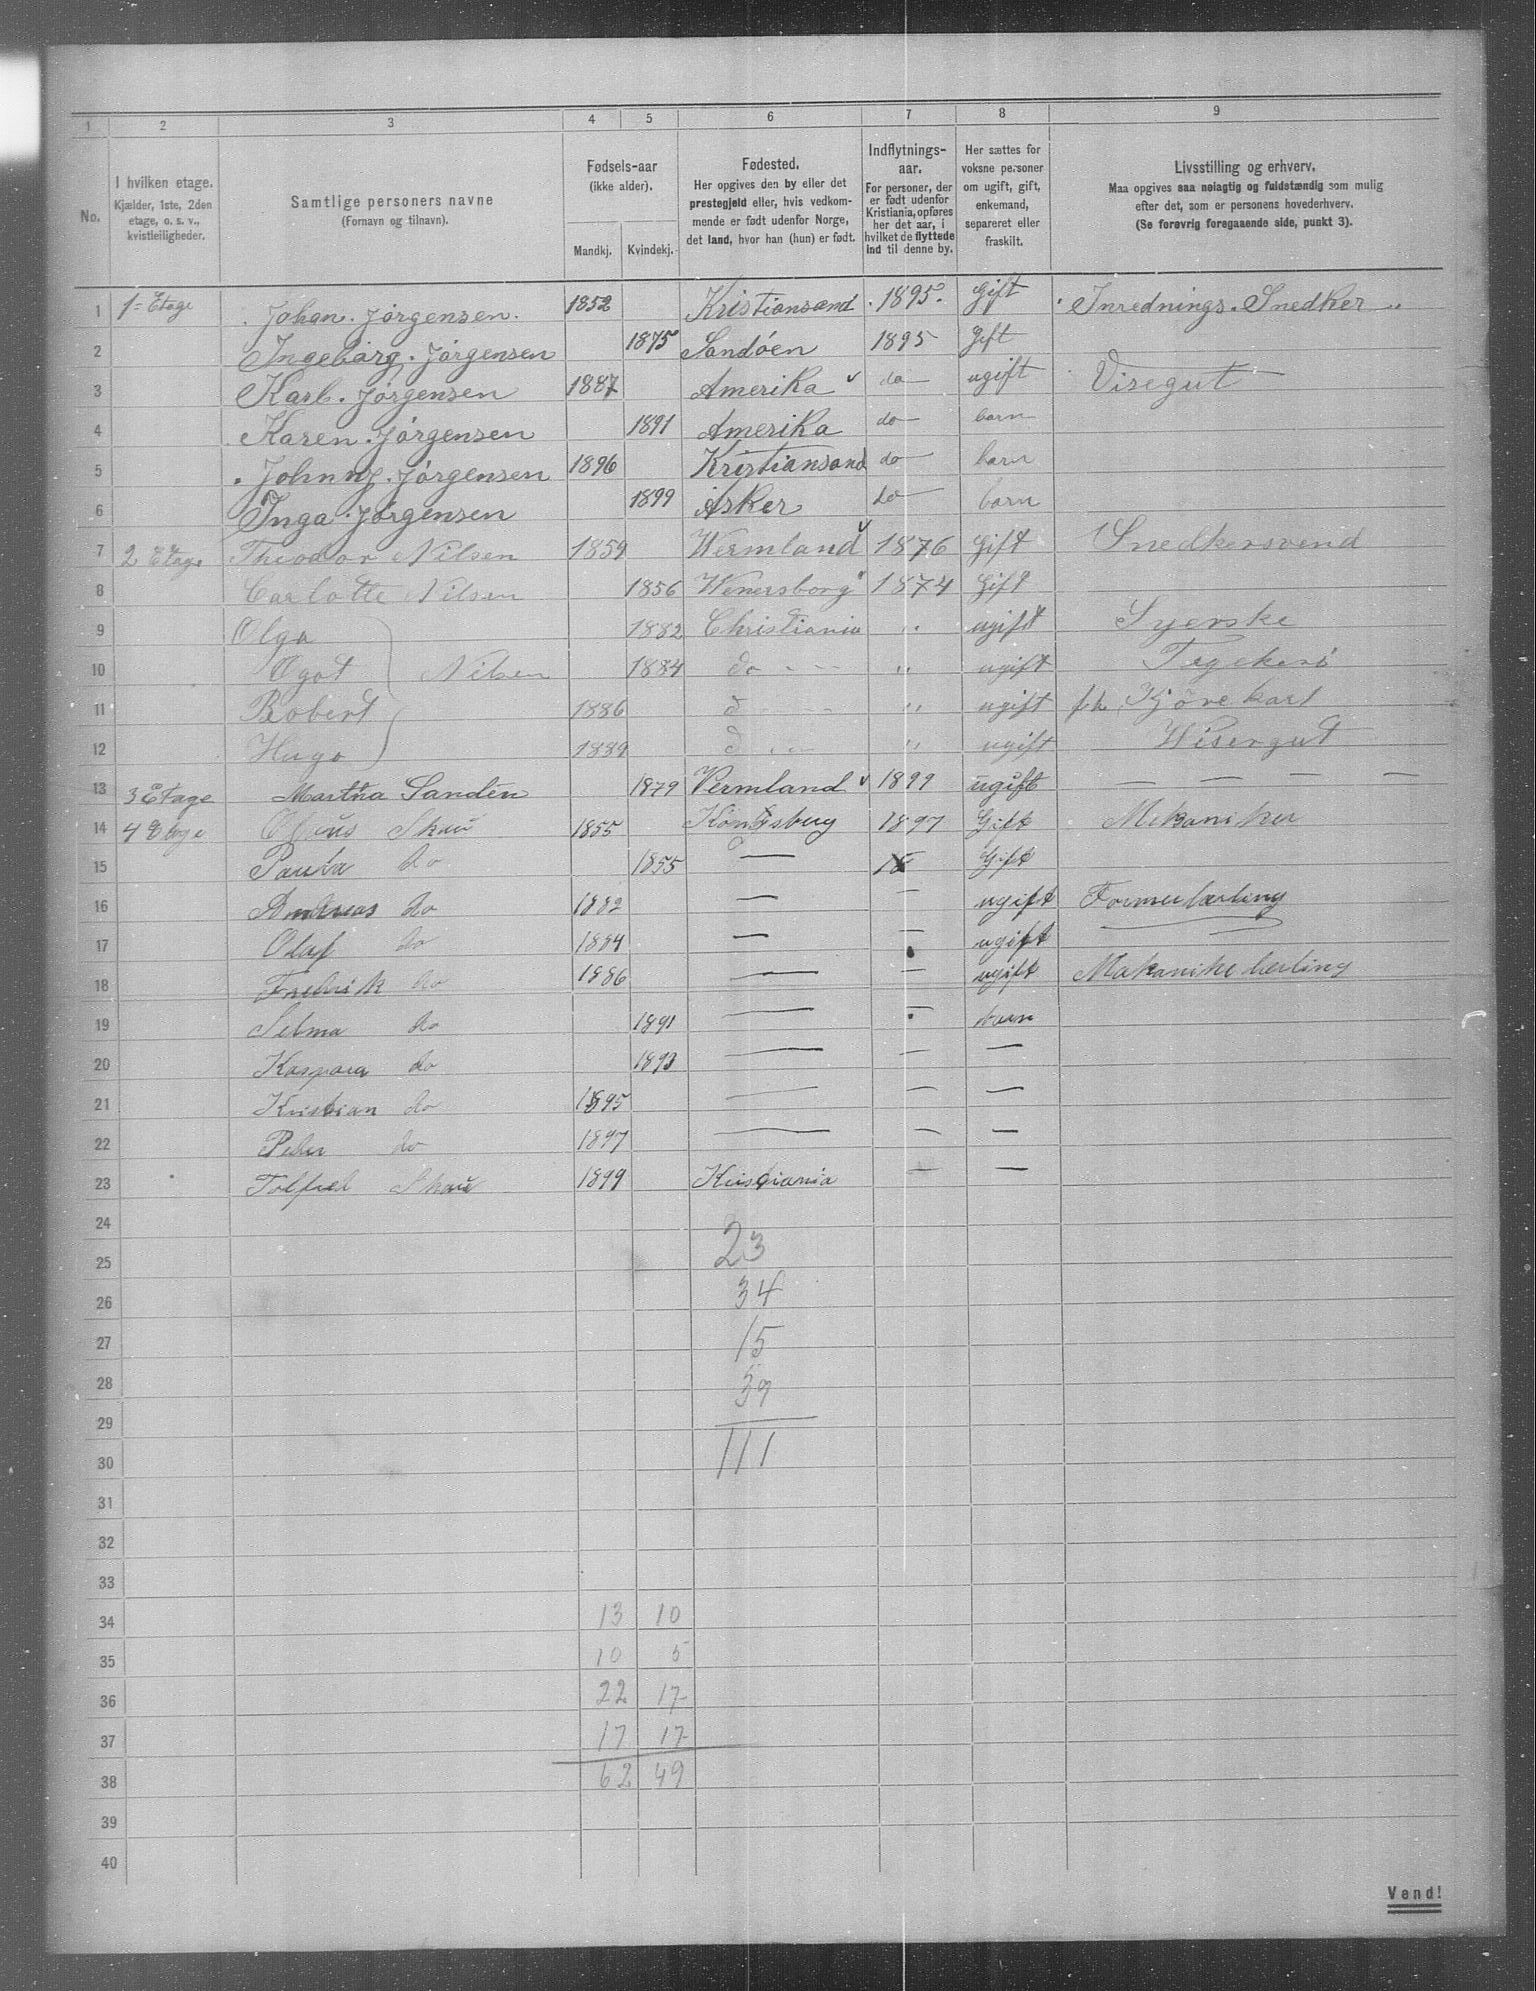 1 2 3 4 5 6 7 8 9
No.
I hvilken etage.
Kjælder, 1ste, 2den
etage, o. s. v.,
kvistleiligheder.
Samtlige personers navne
(Fornavn og tilnavn).
Fødsels-aar
(ikke alder).
Mandkj. Kvindekj.
Fødested.
Her opgives den by eller det
prestegjeld eller, hvis vedkom-
mende er født udenfor Norge,
det land, hvor han (hun) er født.
Indflytnings-
aar.
For personer, der
er født udenfor
Kristiania, opføres
her det aar, i
hvilket de flyttede
ind til denne by.
Her sættes for
voksne personer
om ugift, gift,
enkemand,
separeret eller
fraskilt.
Livsstilling og erhverv.
Maa opgives saa nøiagtig og fuldstændig som mulig
efter det, som er personens hovederhverv.
(Se forøvrig foregaaende side, punkt 3).
1 1- Etage Johan. Jørgensen. 1852 Kristiansand 1895. Gift Inrednings. Snedker
2 Ingebårg. Jørgensen 1875 Sandöen 1895 Gift
3 Karl. Jørgensen 1887 Amerika do ugift Visegut
4 Karen. Jørgensen 1891 Amerika do barn
5 Johnny. Jørgensen 1896 Kristiansand do barn
6 Inga. Jørgensen 1899 Asker do barn
7 2 Etage Theodor Nilsen 1859 Wermland 1876 Gift Snedkersvend
8 Carlotte Nilsen 1856 Wenersborg 1874 Gift
9 Olga 1882 Christiania " ugift Syerske
10 Ogot Nilsen 1884 do " ugift
11 Robert 1886 d " ugift Kjörekarl
12 Hugo 1889 d " ugift Wisergut
13 3 Etage Martha Sandén 1879 Vermland 1899 ugift — — — —
14 4 Etage Skau 1855 Köngsberg 1897 Gift Mekaniker
15 Paula do 1855 — Gift
16 Andreas do 1882 — — ugift Formerlærling
17 Olaf do 1884 — — ugift
18 Fredrik do 1886 — — ugift Makanike lærling
19 Selma do 1891 — — barn
20 Kaspara do 1893 — — —
21 Kristian do 1895 — — —
22 Peder do 1897 — — —
23 Skau 1899 Kristiania — —
24 23
25
26 34
27 15
28 39
29
30 111
31
32
33
34 13 10
35 10 5
36 22 17
37 17 17
38 62 49
39
40
Vend!